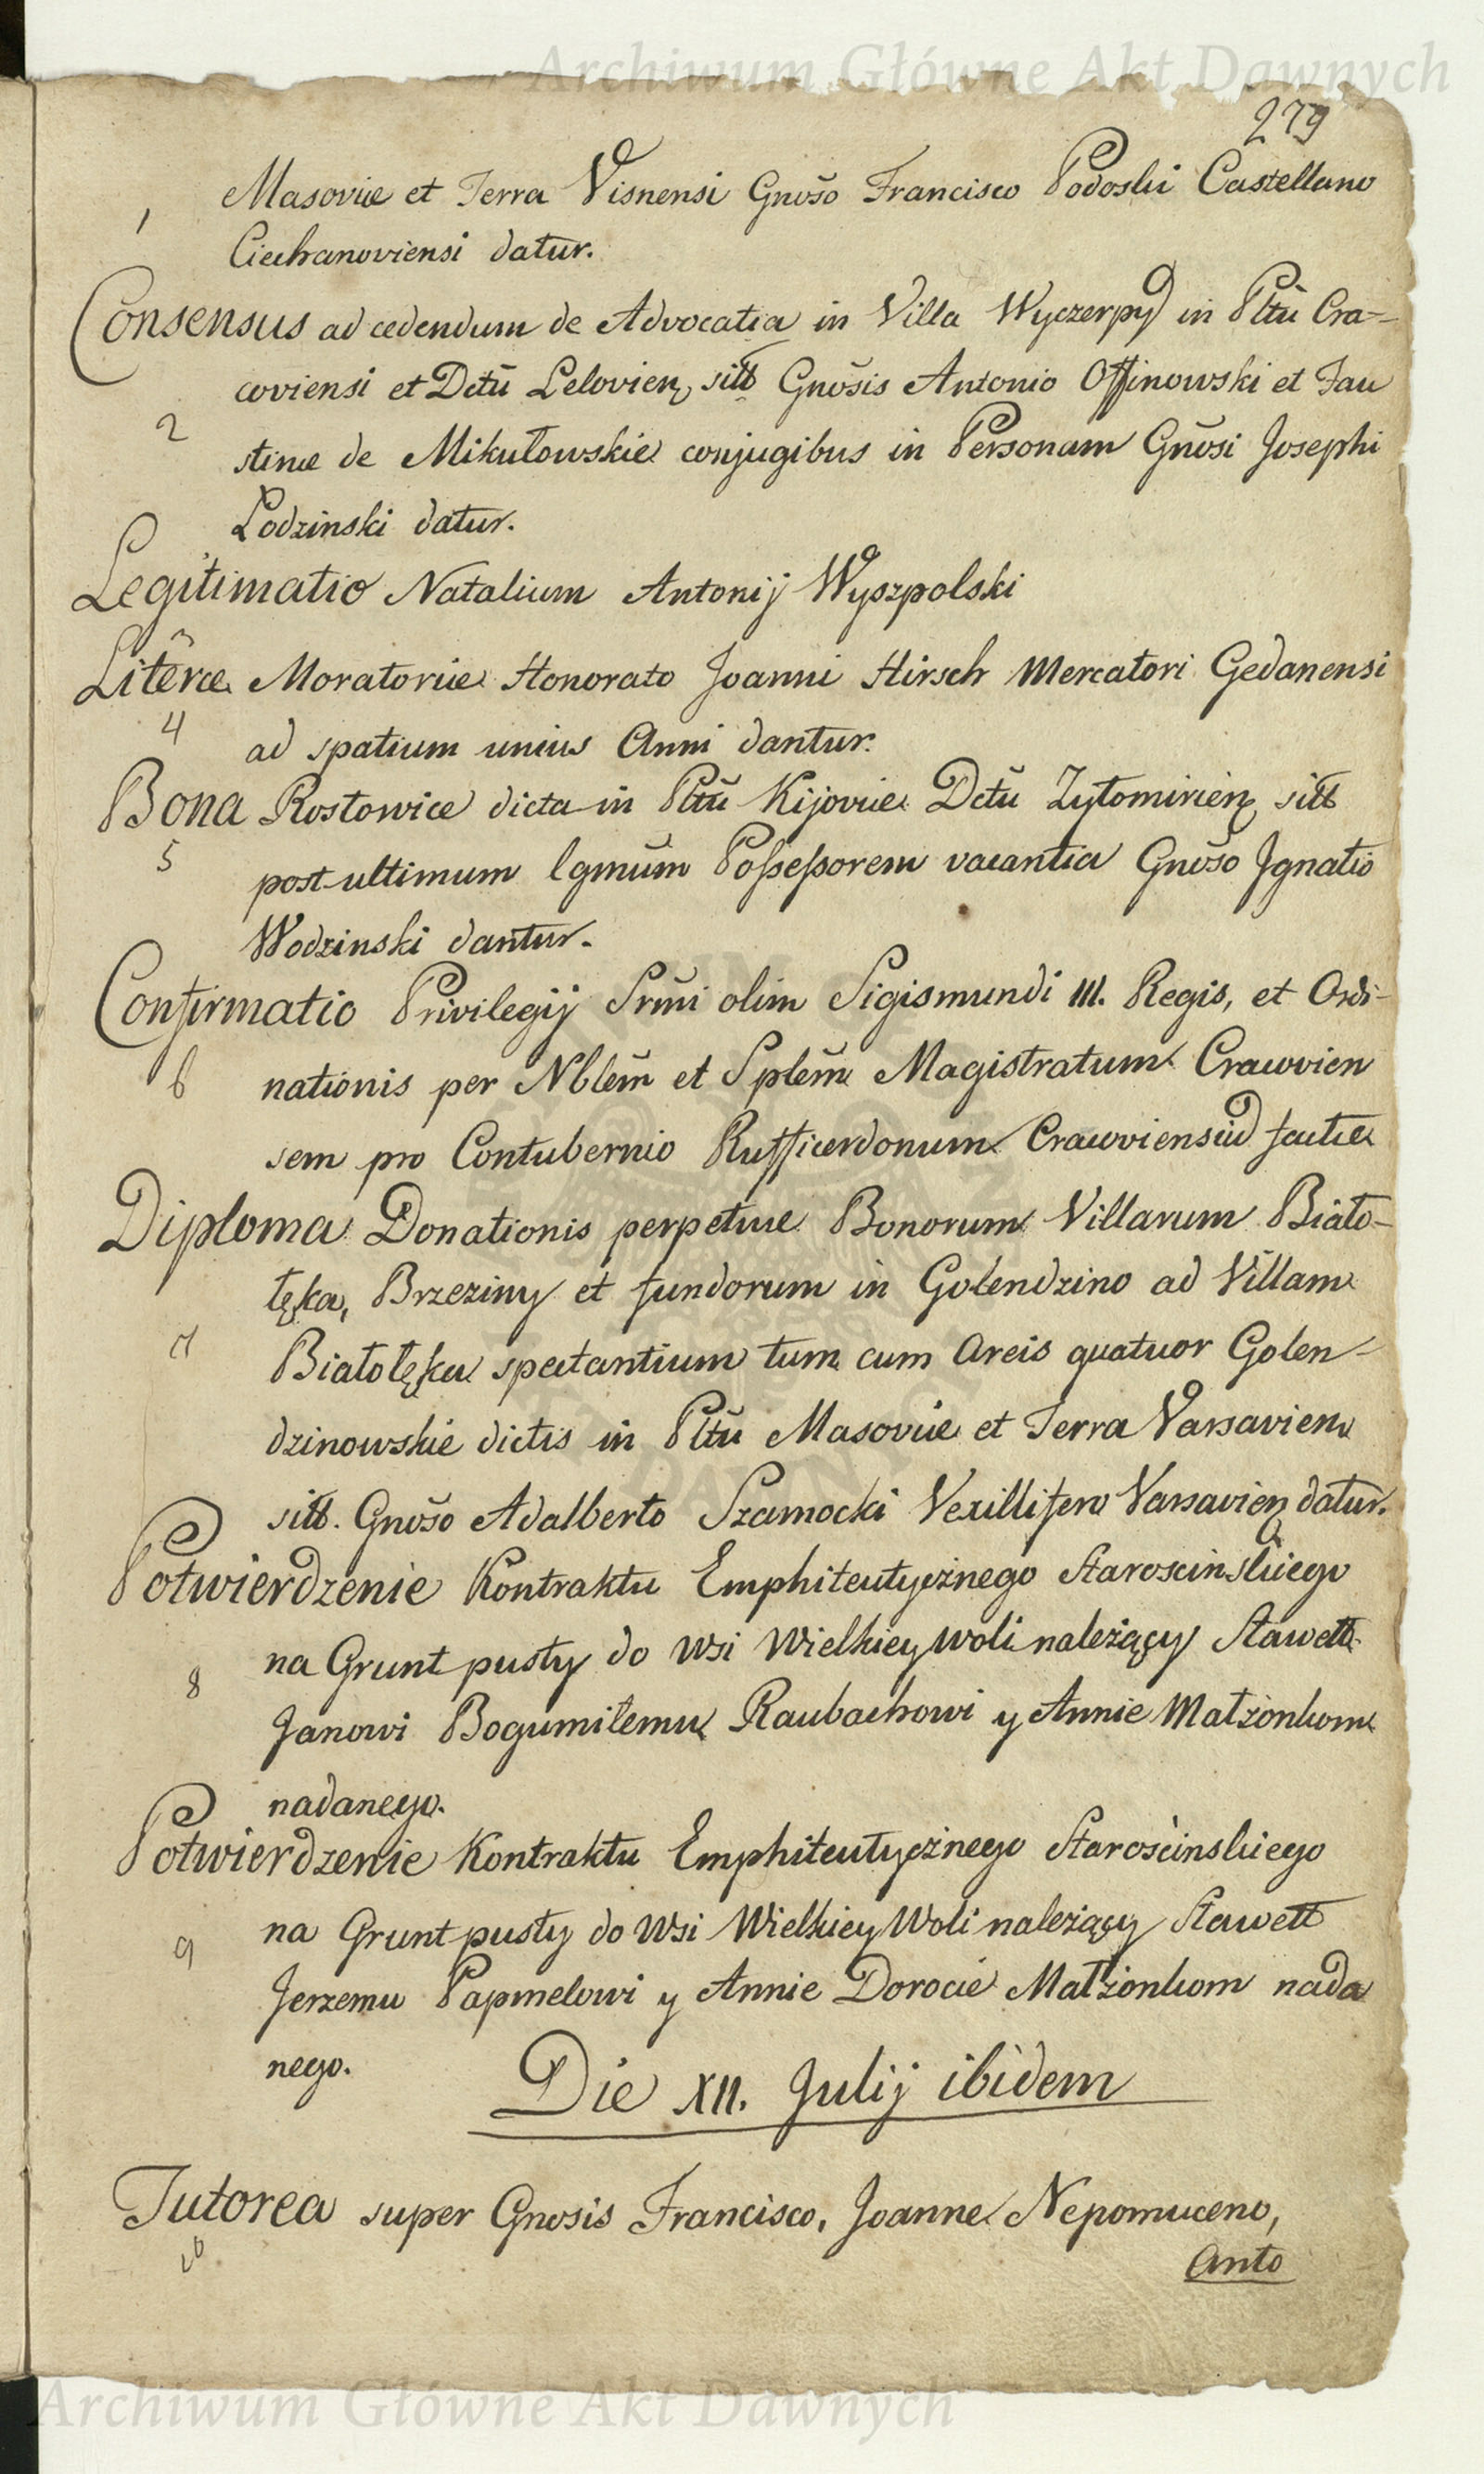 Archiwum Główne Akt Dawnych
279
Masoviæ et Terra Visnensi Gnoso Francisco Podoski Castellano
1
Ciechanoviensi datur.
Consensus ad cedendum de Advocatia in Villa Wyczerpy in Pltu Cra-
coviensi et Dctu Lelovien sitt Gnosis Antonio Offinowski et Fau
2
stinæ de Mikułowskie conjugibus in Personam Gnosi Josephi
Lodzinski datur.
Legitimatio Natalium Antonij Wyszpolski
3
Literæ Moratoriæ Honorato Joanni Hirsch Mercatori Gedanensi
4
ad spatium unius Anni dantur.
Bona Rostowice dicta in Pltu Kijoviæ Dctu Zytomirien sitt
5
post ultimum lgmum Possessorem vacantia Gnoso Jgnatio
Wodzinski dantur.
Confirmatio Privilegij Srmi olim Sigismundi III. Regis, et Ordi-
6
nationis per Nblem et Splem Magistratum Cracovien
sem pro Contubernio Rufficerdonum Cracoviensiu factæ
Diploma Donationis perpetuæ Bonorum Villarum Biało-
łęka, Brzeziny et fundorum in Golendzino ad Villam
7
Białołęka spectantium tum cum Areis quatuor Golen-
dzinowskie dictis in Pltu Masoviæ et Terra Varsavien
sitt. Gnoso Adalberto Szamocki Vexillifero Varsavien datur.
Potwierdzenie Kontraktu Emphiteutycznego Starościnskiego
na Grunt pusty do Wsi Wielkiey Woli należący Sławett
8
Janowi Bogumiłemu Raubachowi y Annie Małżonkom
nadanego.
Potwierdzenie Kontraktu Emphiteutycznego Starościnskiego
na Grunt pusty do Wsi Wielkiey Woli należący Sławett
9
Jerzemu Papmelowi y Annie Dorocie Małżonkom nada
nego.
Die XII. Julij ibidem
Tutorea super Gnosis Francisco, Joanne Nepomuceno,
10
Anto
Archiwum Główne Akt Dawnych